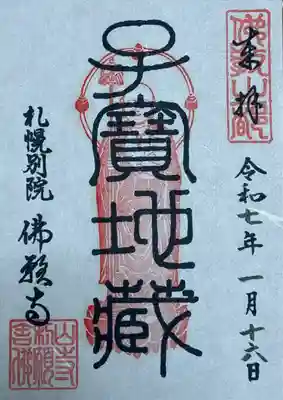 奉拝
令和七年一月十六日
子寶地蔵
札幌別院 佛願寺